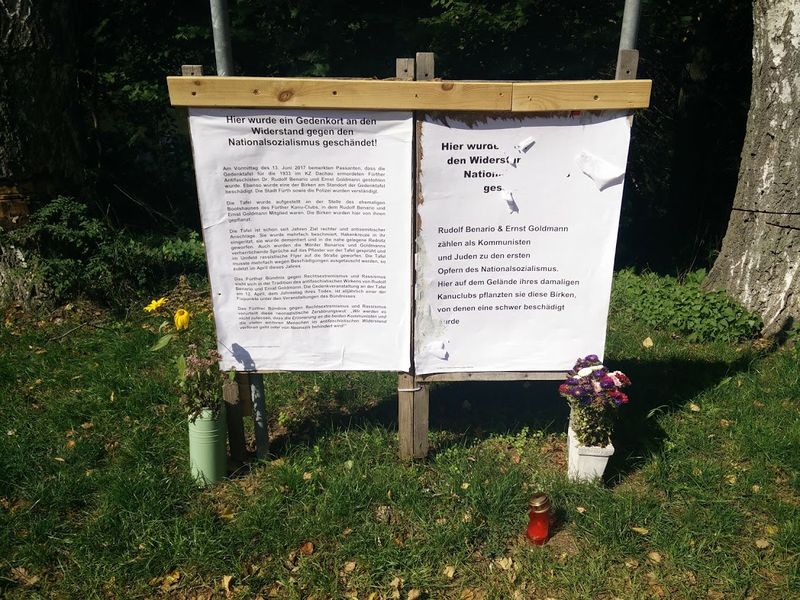 Hier wurde ein Gedenkort an den
Widerstand gegen den
Nationalsozialismus geschändet!
Am Vormittag des 13. Juni 2017 bemerkten Passanten, dass die
Gedenktafel für die 1933 im KZ Dachau ermordeten Fürther
Antifaschisten Dr. Rudolf Benario und Ernst Goldmann gestohlen
wurde. Ebenso wurde eine der Birken am Standort der Gedenktafel
beschädigt. Die Stadt Fürth sowie die Polizei wurden verständigt.
Die Tafel wurde aufgestellt an der Stelle des ehemaligen
Bootshauses des Fürther Kanu-Clubs, in dem Rudolf Benario und
Ernst Goldmann Mitglied waren. Die Birken wurden hier von ihnen
gepflanzt.
Die Tafel ist schon seit Jahren Ziel rechter und antisemitischer
Anschläge. Sie wurde mehrfach beschmiert, Hakenkreuze in ihr
eingeritzt, sie wurde demontiert und in die nahe gelegene Rednitz
geworfen. Auch wurden die Mörder Benarios und Goldmanns
verherrlichende Sprüche auf das Pflaster vor der Tafel gesprüht und
im Umfeld rassistische Flyer auf die Straße geworfen. Die Tafel
musste mehrfach wegen Beschädigungen ausgetauscht werden, so
zuletzt im April dieses Jahres.
Das Fürther Bündnis gegen Rechtsextremismus und Rassismus
sieht sich in der Tradition des antifaschistischen Wirkens von Rudolf
Benario und Ernst Goldmann. Die Gedenkveranstaltung an der Tafel
am 12. April, dem Jahrestag ihres Todes, ist alljährlich einer der
Fixpunkte unter den Veranstaltungen des Bündnisses.
Das Fürther Bündnis gegen Rechtsextremismus und Rassismus
verurteilt diese neonazistische Zerstörungswut. „Wir werden es
nicht zulassen, dass die Erinnerung an die beiden Kommunisten und
die vielen weiteren Menschen im antifaschistischen Widerstand
verloren geht oder von Neonazis behindert wird!"
Hier wurde
den Widerstar
Nation
ges
Rudolf Benario & Ernst Goldmann
zählen als Kommunisten
und Juden zu den ersten
Opfern des Nationalsozialismus.
Hier auf dem Gelände ihres damaligen
Kanuclubs pflanzten sie diese Birken,
von denen eine schwer beschädigt
urde